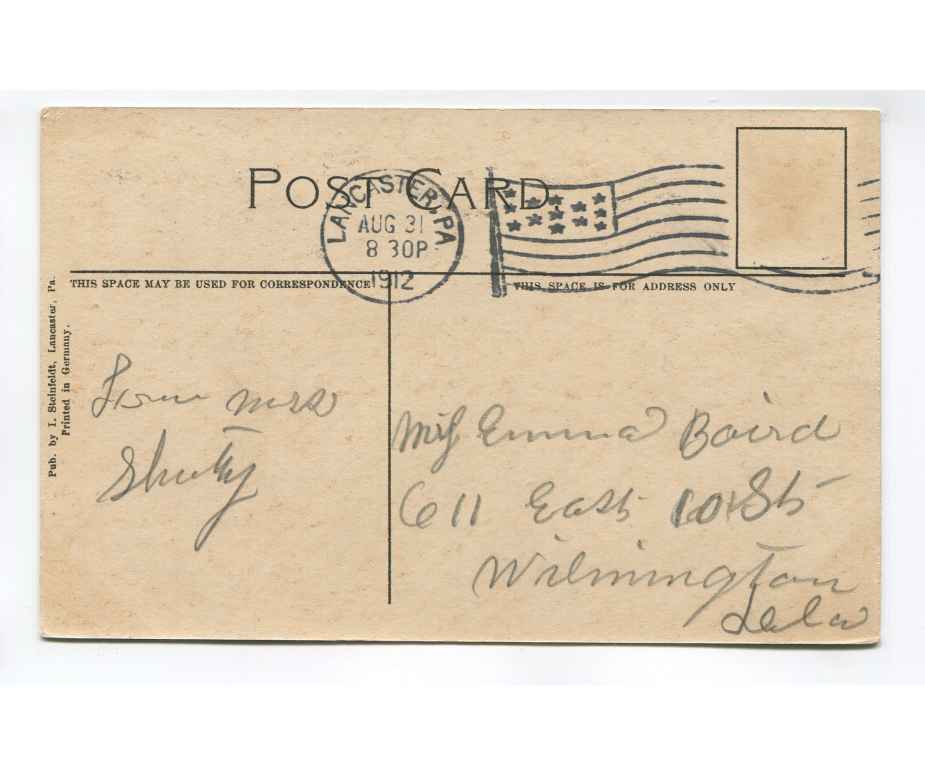 POST CARD.
LANCASTER, PA
AUG 31
8 30P
1912
THIS SPACE MAY BE USED FOR CORRESPONDENCE
THIS SPACE IS FOR ADDRESS ONLY
Pub. by I. Steinfeldt, Lancaster, Pa.
Printed in Germany.
From mrs
Shutty
Miss Emma Baird
611 East 10 St
Wilmington
Dela